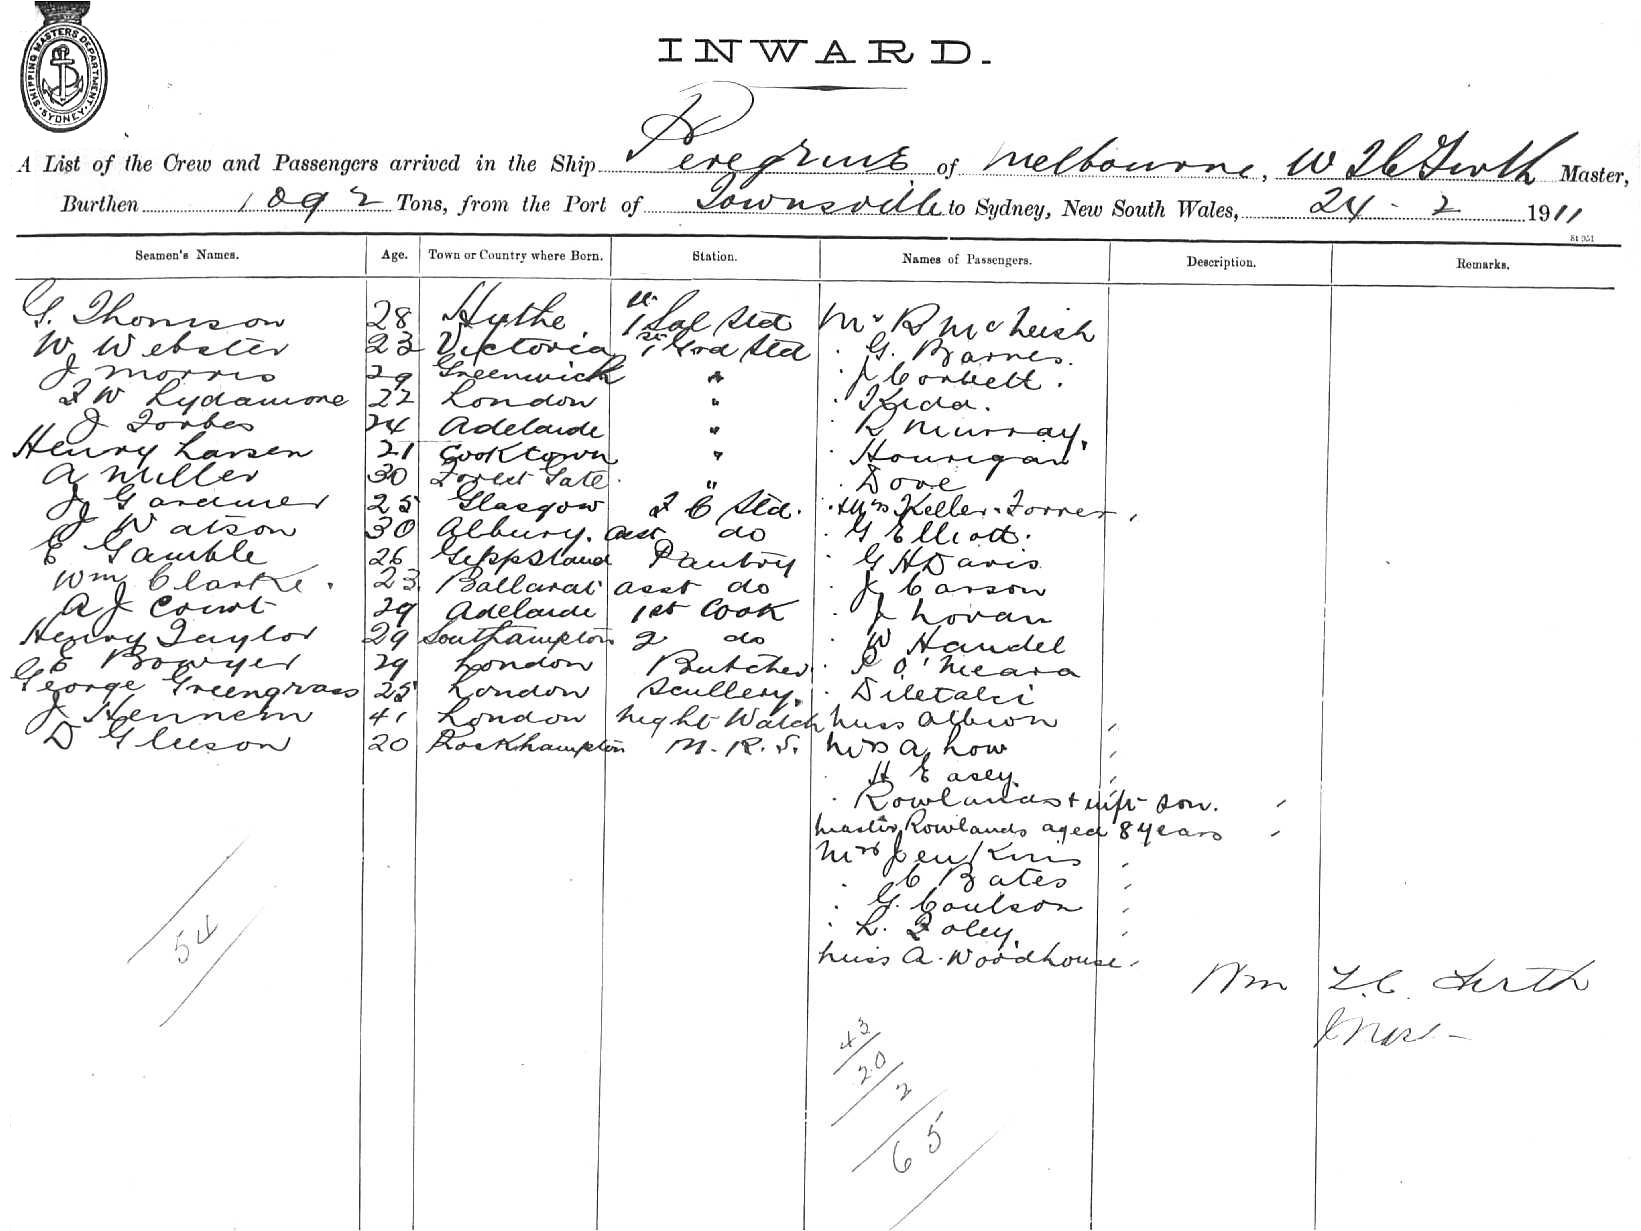 SHIPPING MASTERS DEPARTMENT SYDNEY
INWARD.
A List of the Crew and Passengers arrived in the Ship Peregrine of Melbourne, W Firth Master,
Burthen 1092 Tons, from the Port of Townsville to Sydney, New South Wales, 24 - 2 1911
St 951
Seamen's Names. Age. Town or Country where Born. Station. Names of Passengers. Description. Remarks.
G. Thomson 28 Hythe 1st Sal Std Mr R McLeish
W Webster 23 Victoria 1st Grd Std . G. Barnes.
J Morris 29 Greenwich " . J Corbett.
F W Lydamore 22 London " . Kidd.
J Forbes 24 Adelaide " . R Murray,
Henry Larsen 21 Cooktown " . Hourigan
A Miller 30 Forest Gate. " . Dove
J Gardiner 25 Glasgow F C Std. . Keller-Forrer,
J Watson 30 Albury. asst do . G Elliott.
E Gamble 26 Gippsland Pantry . G H Davis
Wm Clarke. 23 Ballarat asst do . J Carson
A J Court 29 Adelaide 1st Cook . J Lovan
Henry Taylor 29 Southampton 2 do . W Handel
G E Bowyer 29 London Butcher . P O'Meara
George Greengrass 25 London Scullery. . Diletalii
J Hennem 41 London Night Watch Miss Albion
D Gleeson 20 Rockhampton M.R.S. Mrs A Low
. H Easey.
. Rowlands + inft son.
Master Rowlands aged 8 years
Mrs Jenkins
. C Bates
. G. Coulson
. L. Foley.
Miss A. Woodhouse
54
Wm F.C. Firth
43
20
2
65